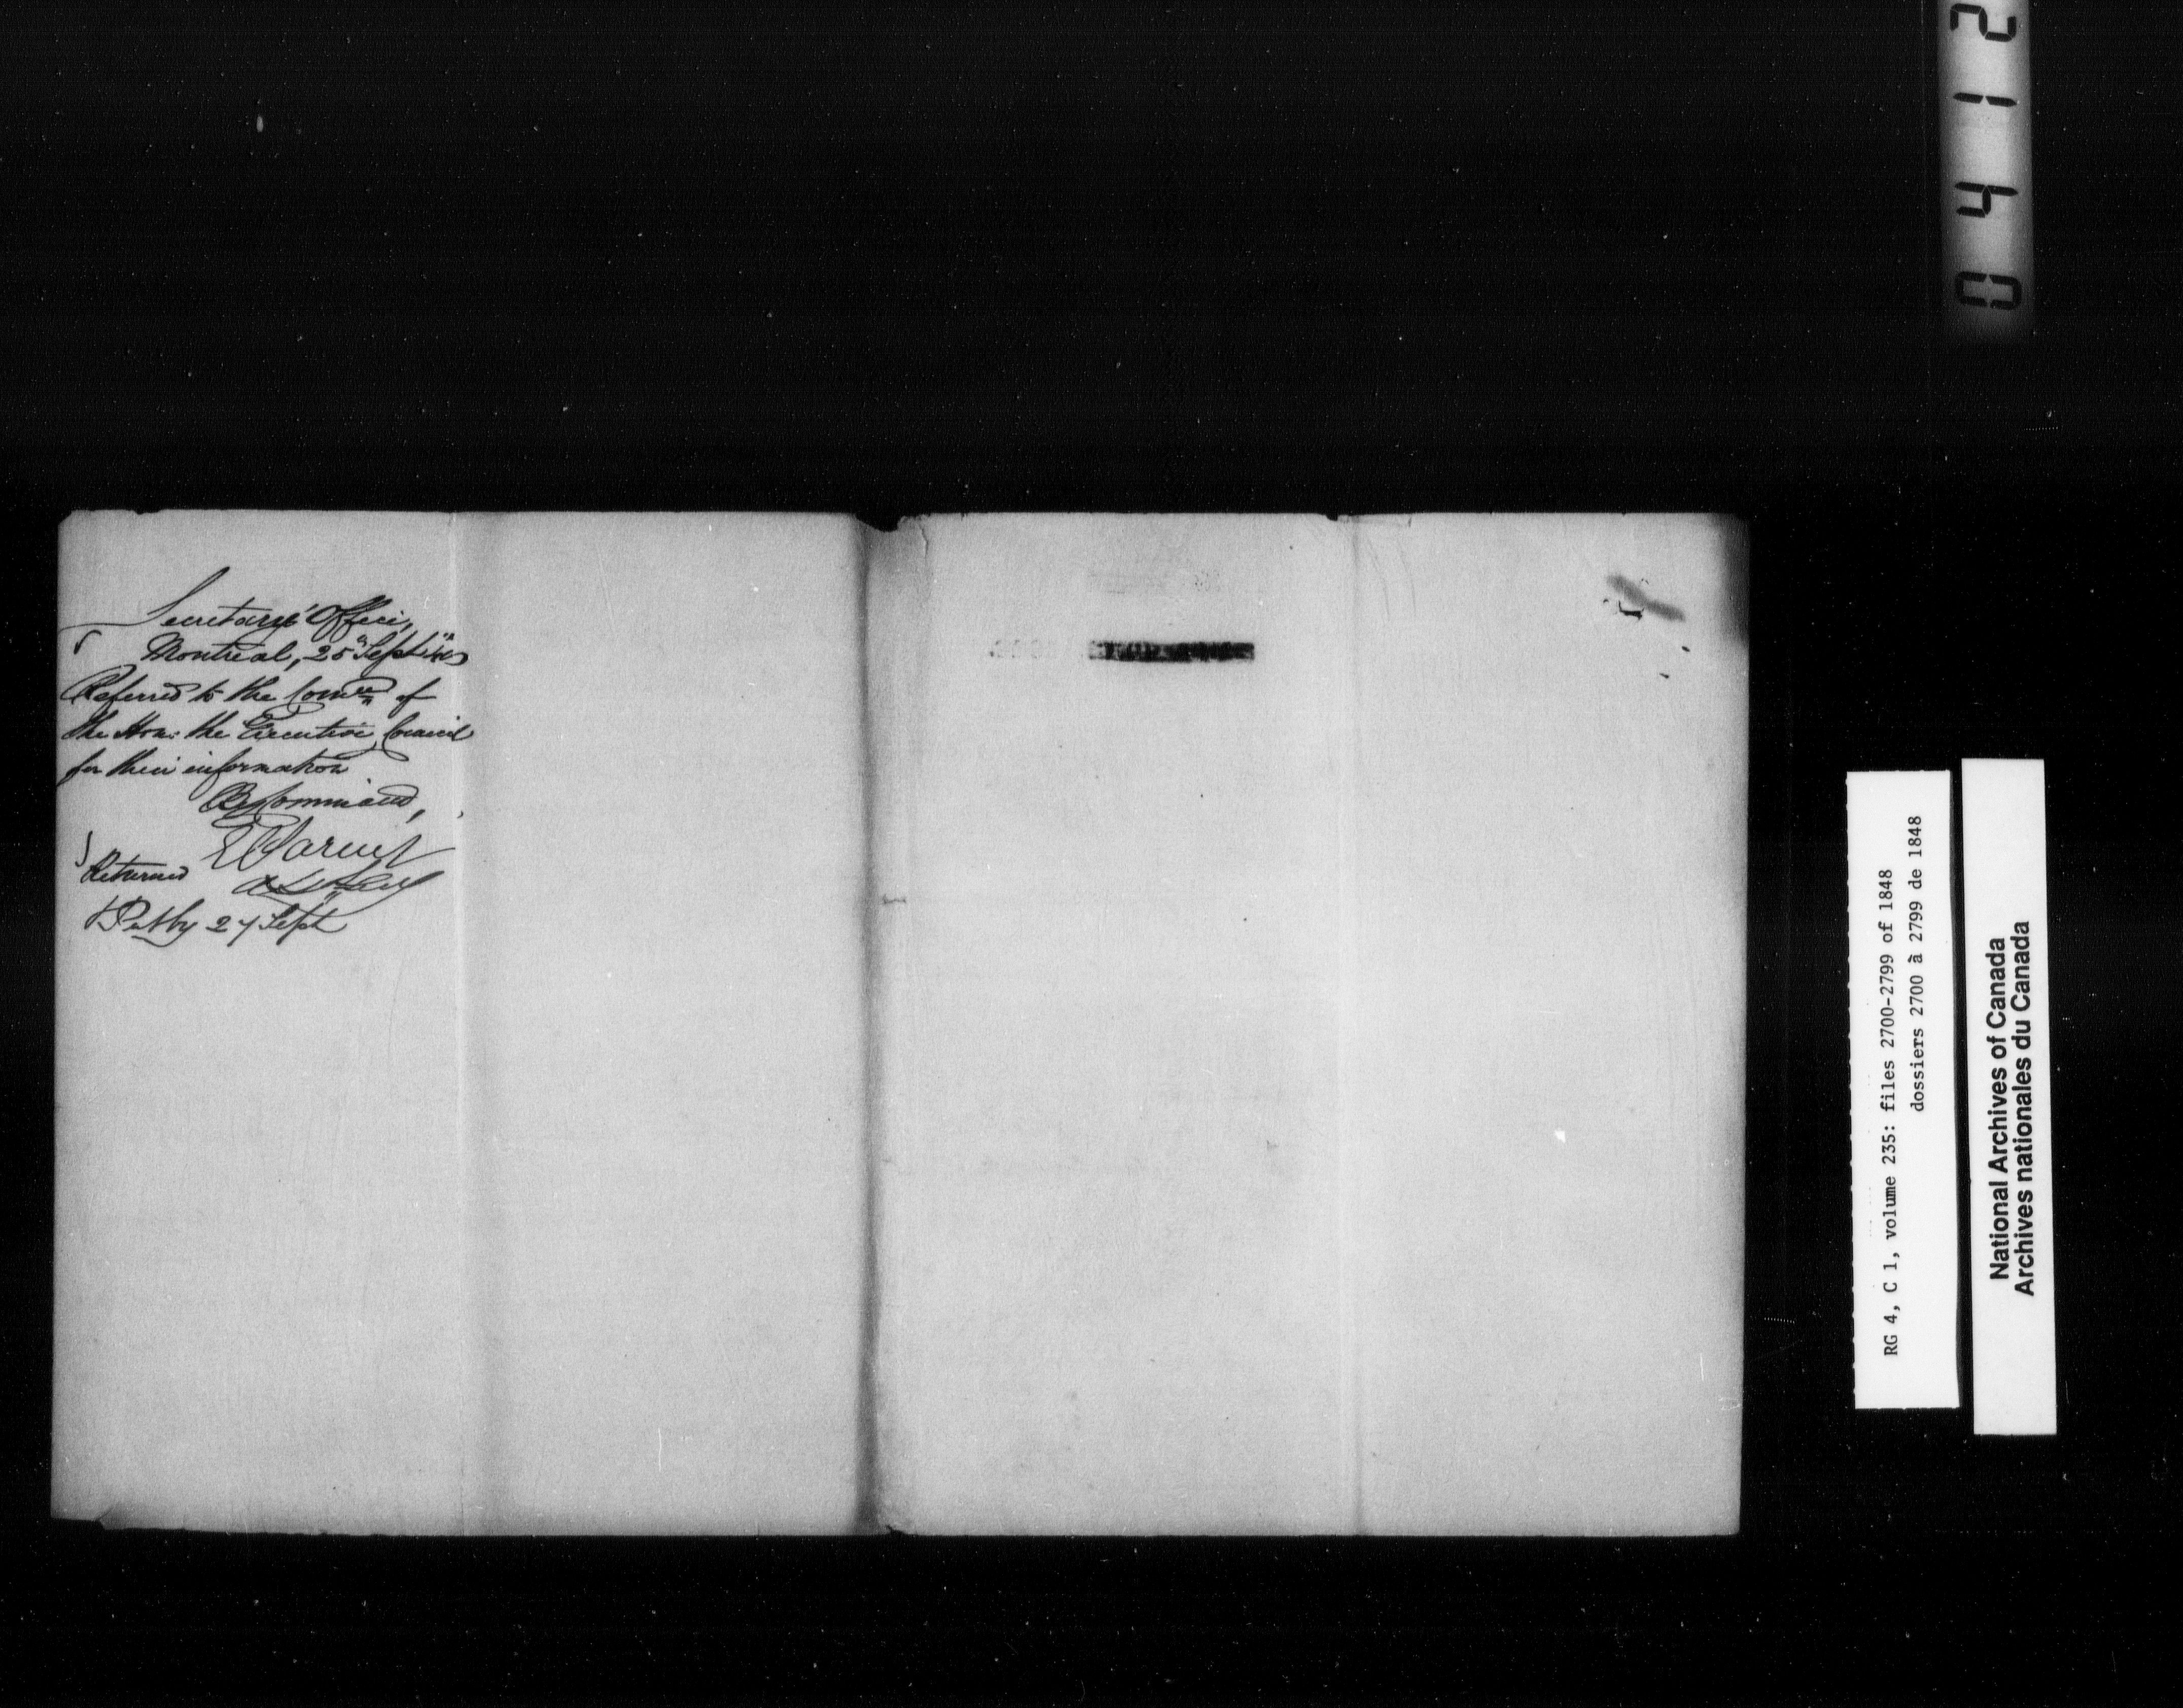 Secretary's Office,
Montreal, 25th Sept 1848
Referred to the Comee of
the Hon: the Executive Council
for their information
By Command,
E Parent
Asst Secy
Returned
27 Sept
0412
RG 4, C 1, volume 235: files 2700-2799 of 1848
dossiers 2700 à 2799 de 1848
National Archives of Canada
Archives nationales du Canada